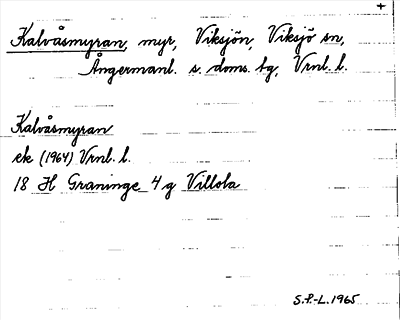 +
Kalvåsmyran, myr, Viksjön, Viksjö sn,
Ångermanl. s. doms. tg, Vrnl. l.
Kalvåsmyran
ek (1964) Vrnl. l.
18 H Graninge 4 g Villola
S.P.-L. 1965